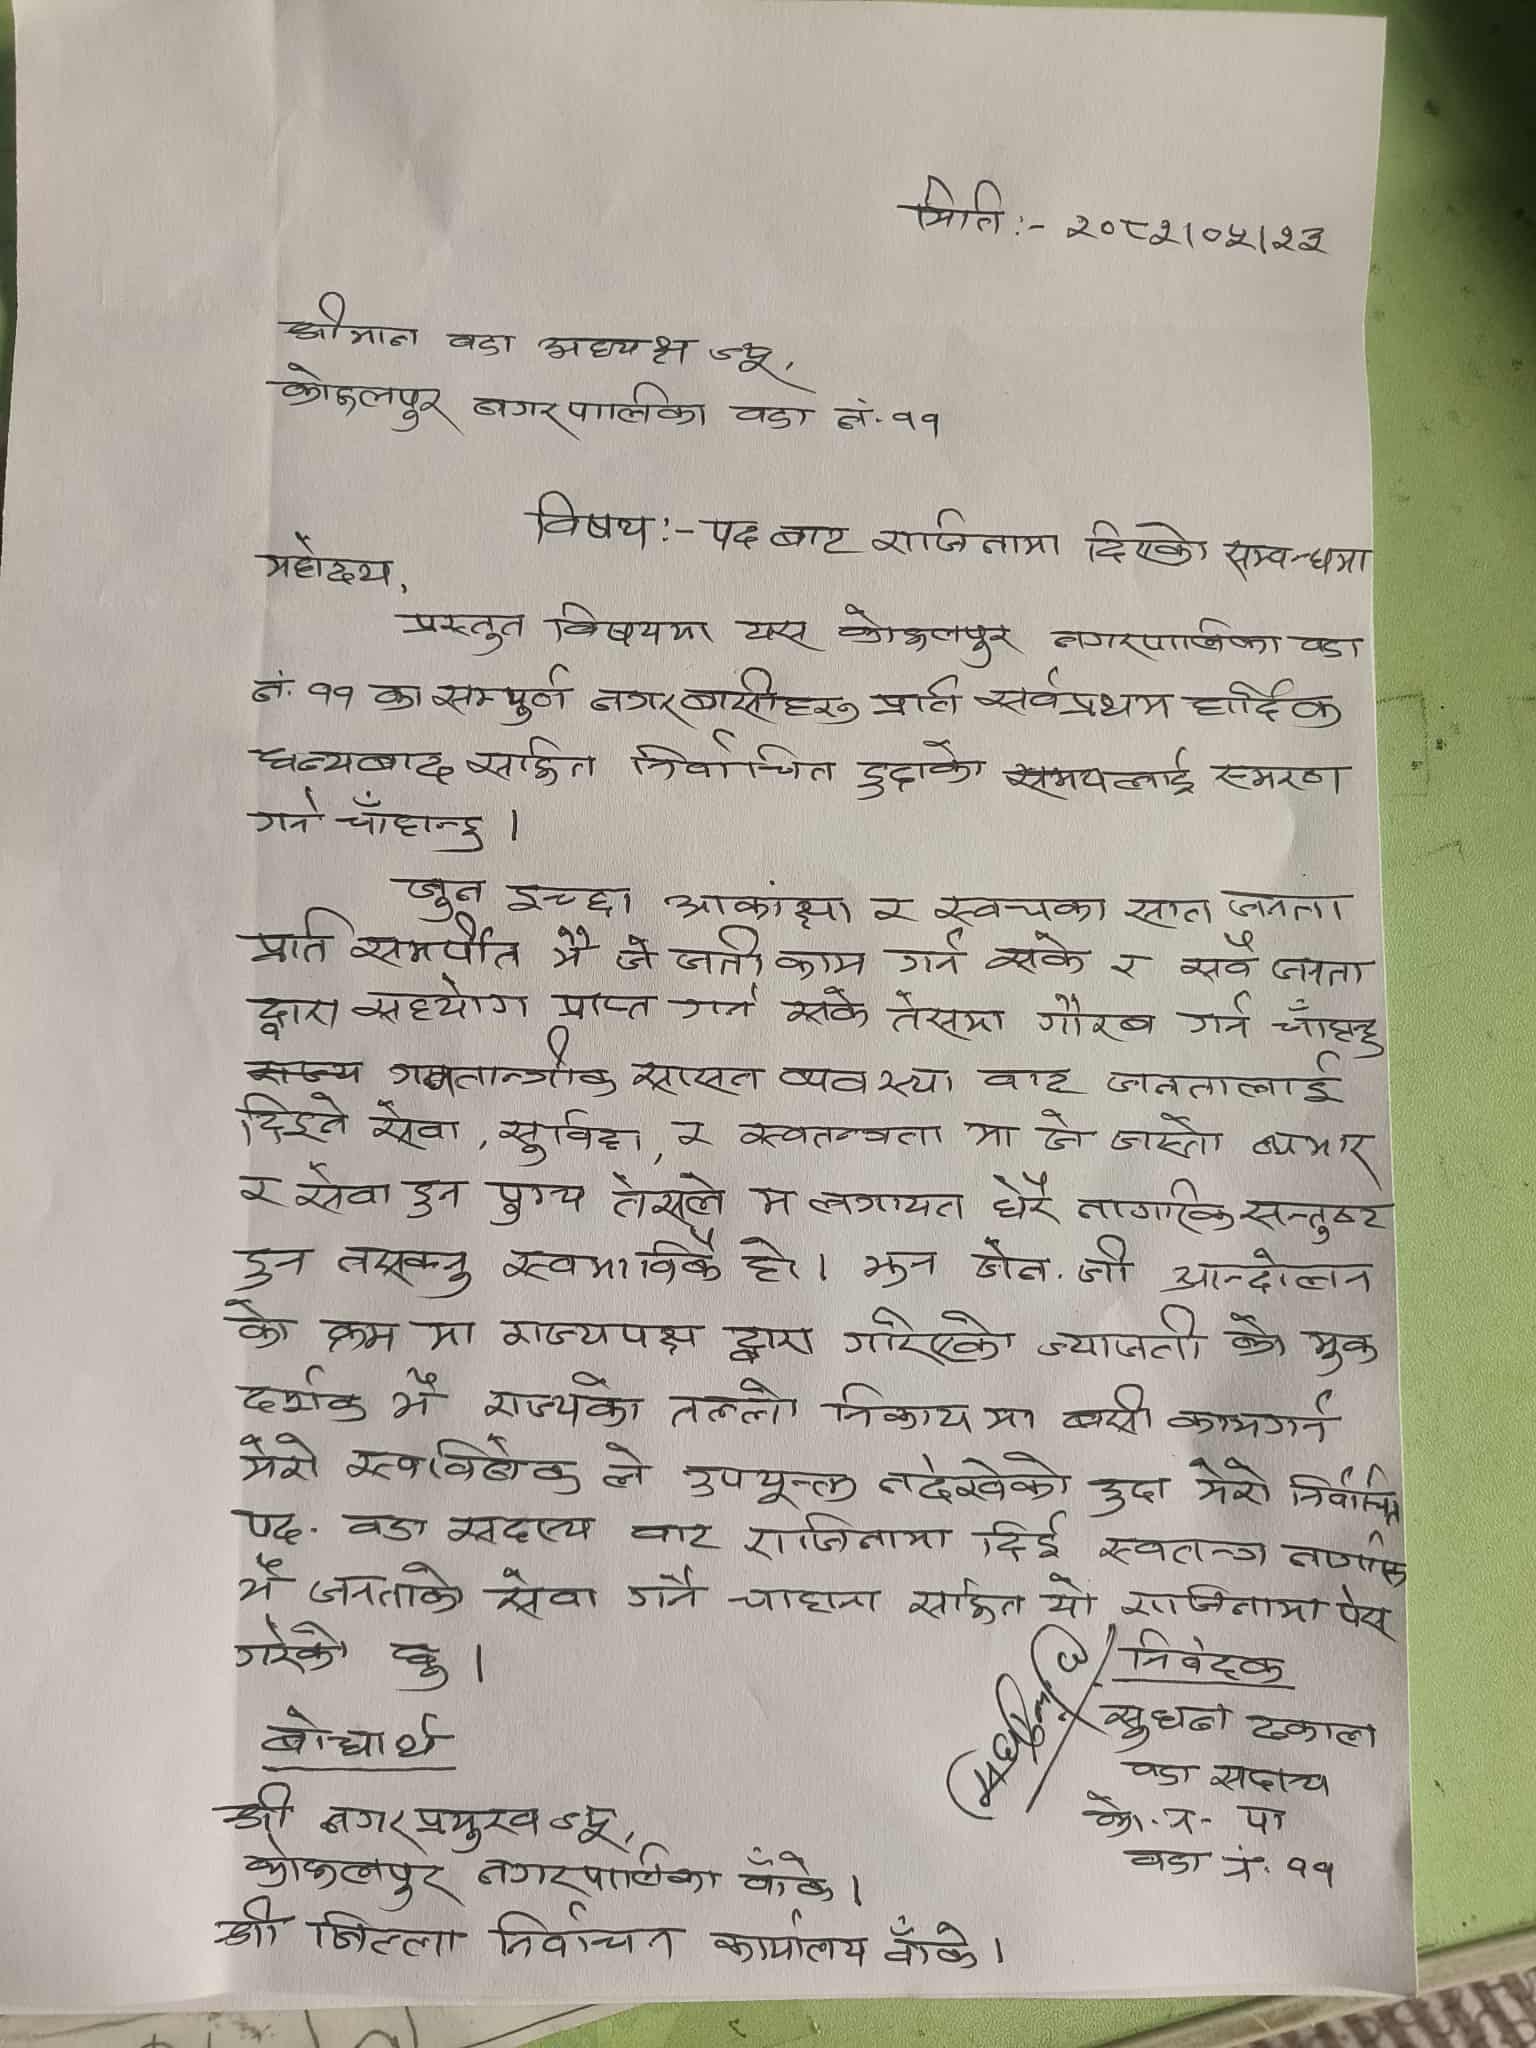 मिति :- २०८२।०५।२३
श्रीमान वडा अध्यक्ष ज्यू,
कोहलपुर नगरपालिका वडा नं. ११
विषय :- पद बाट राजिनामा दिएको सम्वन्धमा
महोदय,
प्रस्तुत विषयमा यस कोहलपुर नगरपालिका वडा
नं. ११ का सम्पुर्ण नगरबासीहरु प्रति सर्वप्रथम हार्दिक
धन्यबाद सहित निर्वाचित हुदाको समयलाई स्मरण
गर्न चाँहान्छु ।
जुन इच्छा आकांक्षा र स्वचका सात जनता
प्रति समर्पीत भै जे जती काम गर्न सके र सवै जनता
द्वारा सहयोग प्राप्त गर्न सके तेसमा गौरब गर्न चाँहान्छु
राज्य गणतान्त्रीक सासन व्यवस्था वाट जनतालाई
दिइने सेवा, सुविधा, र स्वतन्त्रता मा जे जास्तो ब्यभार
र सेवा हुन पुग्य तेसले म लगायत धेरै नागरिक सन्तुष्ट
हुन नसक्नु स्वभाविकै हो । झन जेन. जी आन्दोलन
को क्रम मा राज्यपक्ष द्वारा गरिएको ज्याजती को मुक
दर्शक भै राज्यको तल्लो निकाय मा बसी कामगर्न
मेरो स्वविबेक ले उपयूक्त नदेखेको हुदा मेरो निर्वाचित
पद. वडा सदस्य वाट राजिनामा दिई स्वतन्त्र नागरिक
भै जनताको सेवा गर्ने चाहाना सहित यो राजिनामा पेस
गरेको छु ।
निवेदक
सुधन ढकाल
वडा सदस्य
को. न. पा
वडा नं. ११
बोधार्थ
श्री नगर प्रमुख ज्यू,
कोहलपुर नगरपालिका बाँके ।
श्री जिल्ला निर्वाचन कार्यालय बाँके ।